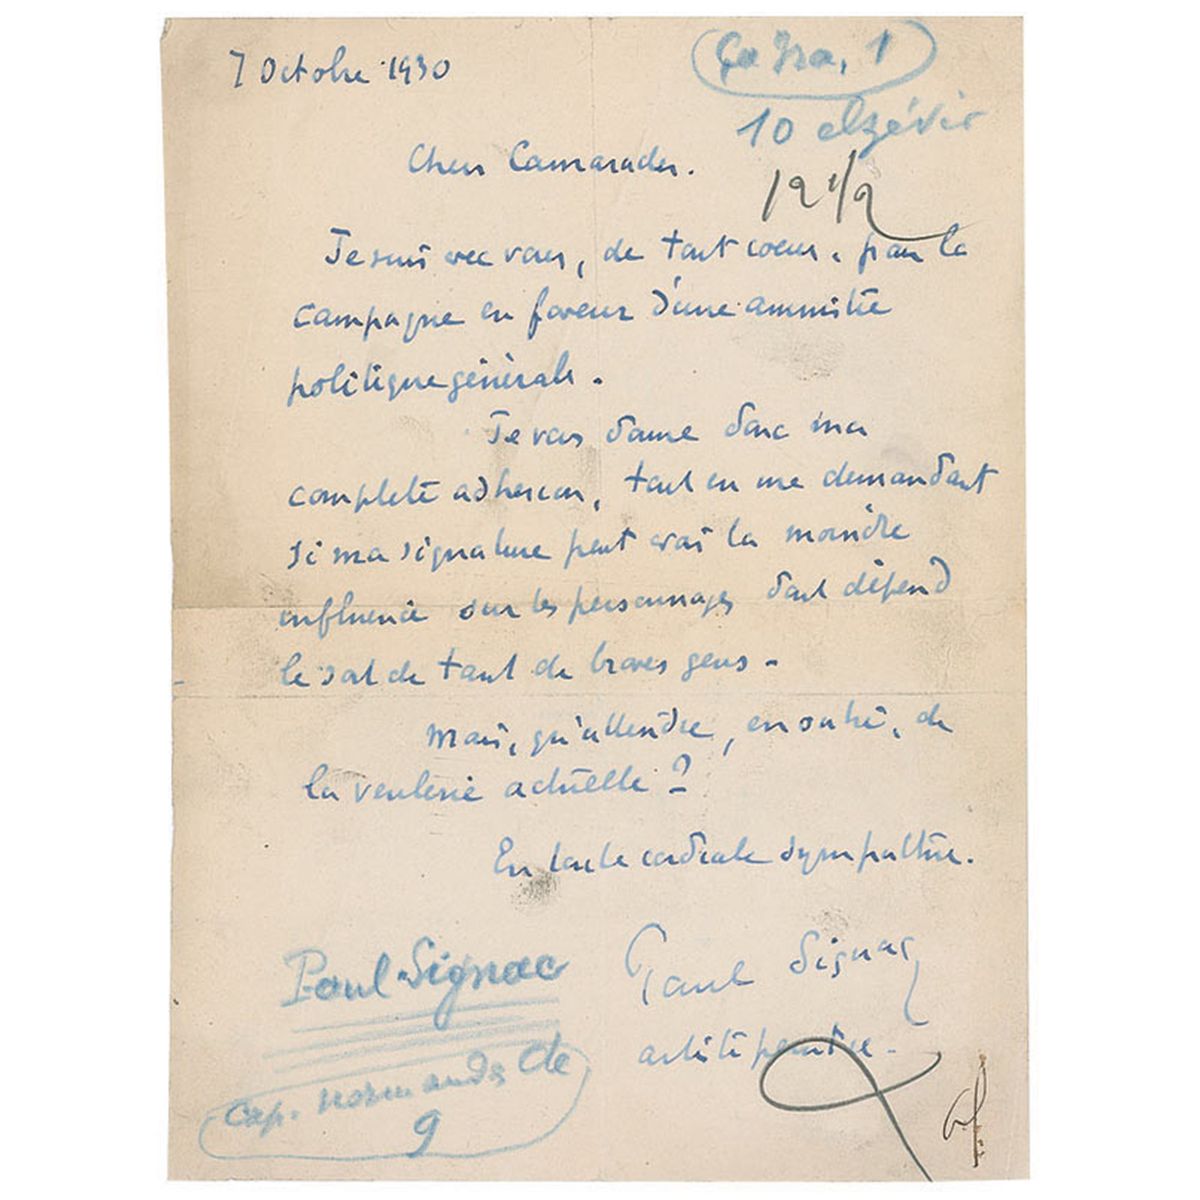 7 Octobre 1930
Ça Ira, 1
10 elzévir
12 1/2
Chers Camarades.
Je suis avec vous, de tout coeur, pour la
campagne en faveur d'une ammistie
politique générale.
Je vous donne donc ma
complète adhesion, tout en me demandant
si ma signature peut avoir la moindre
influence sur les personnages dont dépend
le sort de tant de braves gens -
Mais, qu'attendre, en outre, de
la veulerie actuelle ?
En toute cordiale sympathie.
Paul Signac
artiste peintre -
Paul Signac
Cap. normandes Cle
9